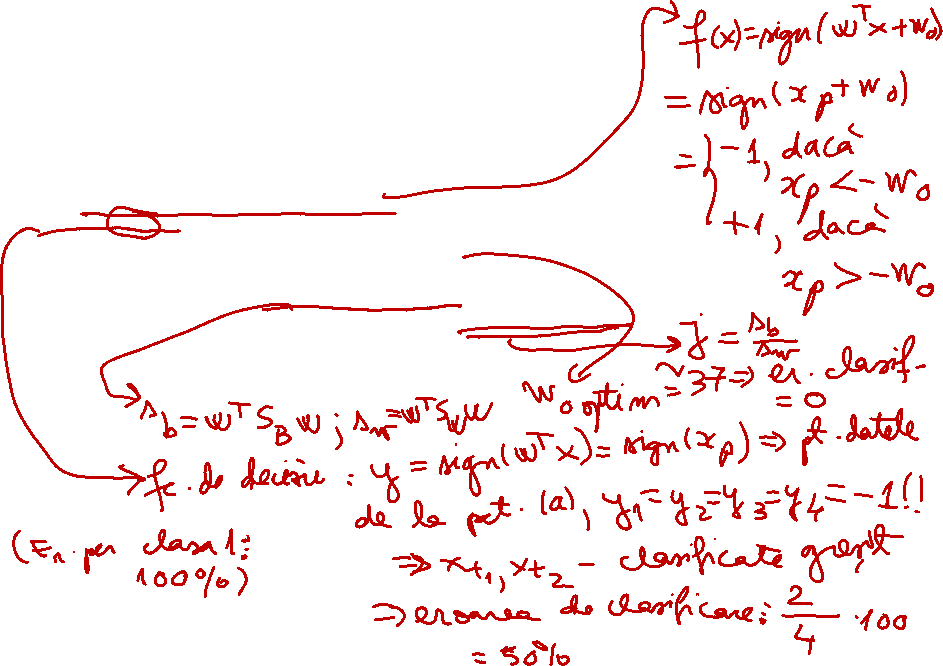 f(x)=sign(wᵀx+w₀)
= sign(x_p+w₀)
= { -1, dacă
x_p < -w₀
+1, dacă
x_p > -w₀
J = s_b/s_w
w₀ optim ≃ 37 ⇒ er. clasif.
= 0
s_b = wᵀS_B w ; s_w = wᵀS_W w
fc. de decizie : y = sign(wᵀx) = sign(x_p) ⇒ pt. datele
de la pct. (a), y₁=y₂=y₃=y₄=-1!!
(Er. per clasa 1:
100%)
⇒ x_t₁, x_t₂ - clasificate greșit
⇒ eroarea de clasificare: 2/4 · 100
= 50%